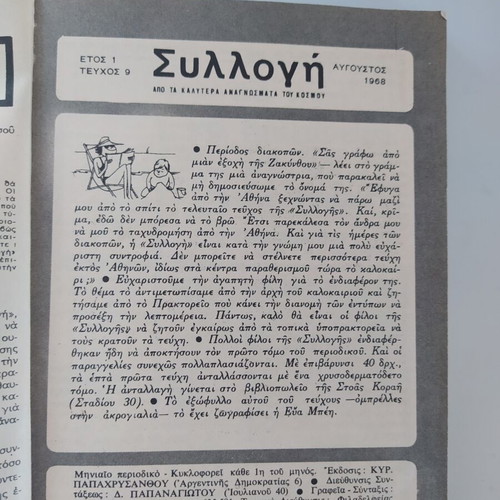 ΕΤΟΣ 1
ΤΕΥΧΟΣ 9
Συλλογή
ΑΥΓΟΥΣΤΟΣ
1968
ΑΠΟ ΤΑ ΚΑΛΥΤΕΡΑ ΑΝΑΓΝΩΣΜΑΤΑ ΤΟΥ ΚΟΣΜΟΥ
● Περίοδος διακοπῶν. «Σᾶς γράφω ἀπὸ
μιὰν ἐξοχὴ τῆς Ζακύνθου» — λέει στὸ γράμ-
μα της μιὰ ἀναγνώστρια, ποὺ παρακαλεῖ νὰ
μὴ δημοσιεύσωμε τὸ ὄνομά της. «Ἔφυγα
ἀπὸ τὴν Ἀθήνα ξεχνώντας νὰ πάρω μαζί
μου ἀπὸ τὸ σπίτι τὸ τελευταῖο τεῦχος τῆς «Συλλογῆς». Καί, κρῖ-
μα, ἐδῶ δὲν μπόρεσα νὰ τὸ βρῶ. Ἔτσι παρεκάλεσα τὸν ἄνδρα μου
νὰ μοῦ τὸ ταχυδρομήση ἀπὸ τὴν Ἀθήνα. Καὶ γιὰ τὶς ἡμέρες τῶν
διακοπῶν, ἡ «Συλλογὴ» εἶναι κατὰ τὴν γνώμη μου μιὰ πολὺ εὐχά-
ριστη συντροφιά. Δὲν μπορεῖτε νὰ στέλνετε περισσότερα τεύχη
ἐκτὸς Ἀθηνῶν, ἰδίως στὰ κέντρα παραθερισμοῦ τώρα τὸ καλοκαί-
ρι;» ● Εὐχαριστοῦμε τὴν ἀγαπητὴ φίλη γιὰ τὸ ἐνδιαφέρον της.
Τὸ θέμα τὸ ἀντιμετωπίσαμε ἀπὸ τὴν ἀρχὴ τοῦ καλοκαιριοῦ καὶ ζη-
τήσαμε ἀπὸ τὸ Πρακτορεῖο ποὺ κάνει τὴν διανομὴ τῶν ἐντύπων νὰ
προσέξη τὴν λεπτομέρεια. Πάντως, καλὸ θὰ εἶναι οἱ φίλοι τῆς
«Συλλογῆς» νὰ ζητοῦν ἐγκαίρως ἀπὸ τὰ τοπικὰ ὑποπρακτορεῖα νὰ
τοὺς κρατοῦν τὰ τεύχη. ● Πολλοὶ φίλοι τῆς «Συλλογῆς» ἐνδιαφέρ-
θηκαν ἤδη νὰ ἀποκτήσουν τὸν πρῶτο τόμο τοῦ περιοδικοῦ. Καὶ οἱ
παραγγελίες συνεχῶς πολλαπλασιάζονται. Μὲ ἐπιβάρυνσι 40 δρχ.,
τὰ ἑπτὰ πρῶτα τεύχη ἀνταλλάσσονται μὲ ἕνα χρυσοδερματόδετο
τόμο. Ἡ ἀνταλλαγὴ γίνεται στὸ βιβλιοπωλεῖο τῆς Στοᾶς Κοραῆ
(Σταδίου 30). ● Τὸ ἐξώφυλλο αὐτοῦ τοῦ τεύχους —ὀμπρέλλες
στὴν ἀκρογιαλιὰ— τὸ ἔχει ζωγραφίσει ἡ Εὔα Μπέη.
Μηνιαῖο περιοδικὸ - Κυκλοφορεῖ κάθε 1η τοῦ μηνός. Ἔκδοσις: ΚΥΡ.
ΠΑΠΑΧΡΥΣΑΝΘΟΥ (Ἀργεντινῆς Δημοκρατίας 6) ● Διεύθυνσις Συν-
τάξεως: Δ. ΠΑΠΑΝΑΓΙΩΤΟΥ (Ἰουλιανοῦ 40) ● Γραφεῖα - Σύνταξις: